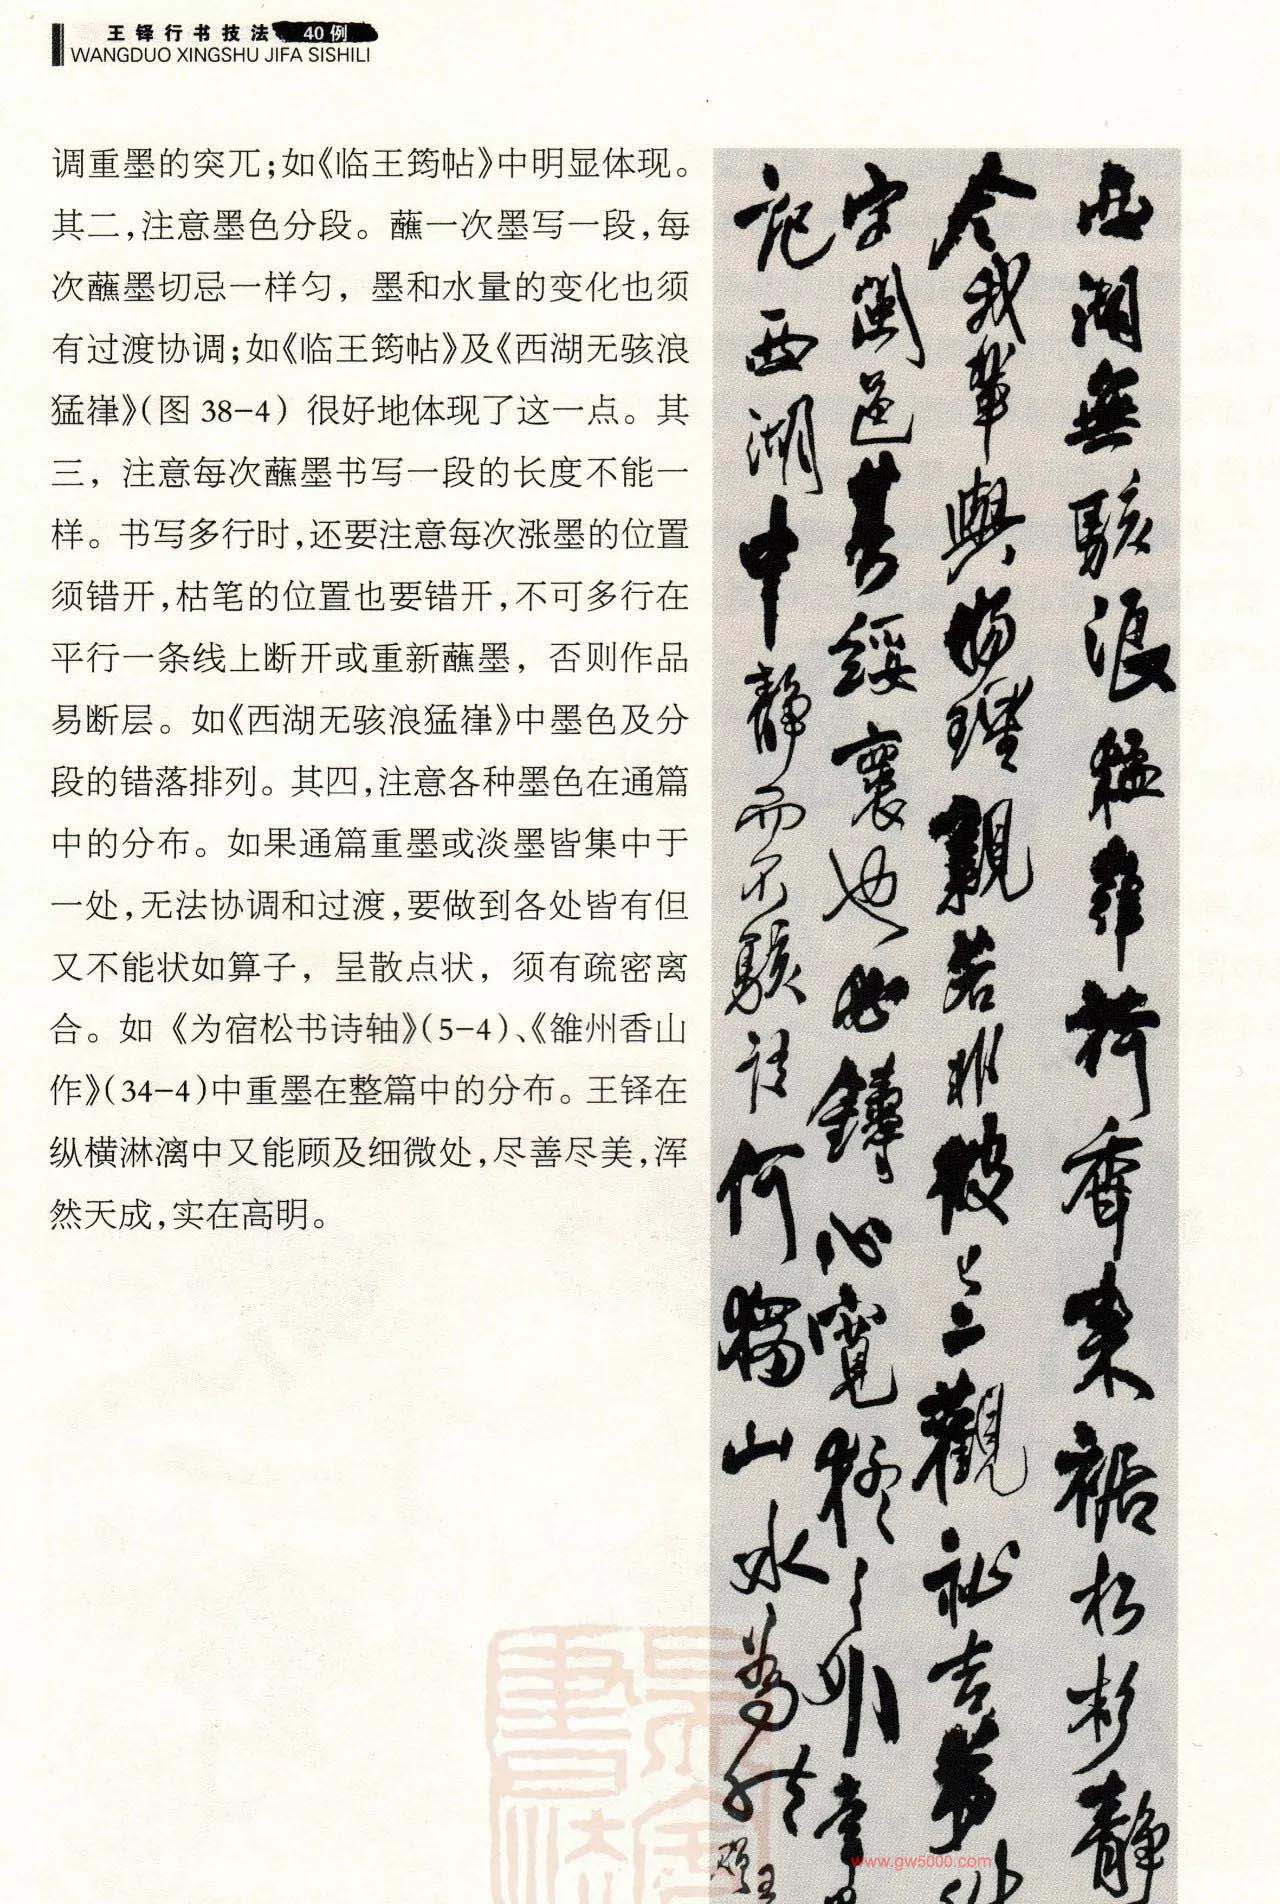 王铎行书技法 40例
WANGDUO XINGSHU JIFA SISHILI
调重墨的突兀;如《临王筠帖》中明显体现。
其二,注意墨色分段。蘸一次墨写一段,每
次蘸墨切忌一样匀,墨和水量的变化也须
有过渡协调;如《临王筠帖》及《西湖无骇浪
猛嵂》(图 38-4) 很好地体现了这一点。其
三,注意每次蘸墨书写一段的长度不能一
样。书写多行时,还要注意每次涨墨的位置
须错开,枯笔的位置也要错开,不可多行在
平行一条线上断开或重新蘸墨,否则作品
易断层。如《西湖无骇浪猛嵂》中墨色及分
段的错落排列。其四,注意各种墨色在通篇
中的分布。如果通篇重墨或淡墨皆集中于
一处,无法协调和过渡,要做到各处皆有但
又不能状如算子,呈散点状,须有疏密离
合。如《为宿松书诗轴》(5-4)、《雒州香山
作》(34-4)中重墨在整篇中的分布。王铎在
纵横淋漓中又能顾及细微处,尽善尽美,浑
然天成,实在高明。
西湖無駭浪猛 荷香來裾松杉靜
今我輩與物理親若非被 二觀祉吉
字闽邑 綏寇也 鑄心寬
記西湖中靜而不駭 何獨山水為
www.gw5000.com